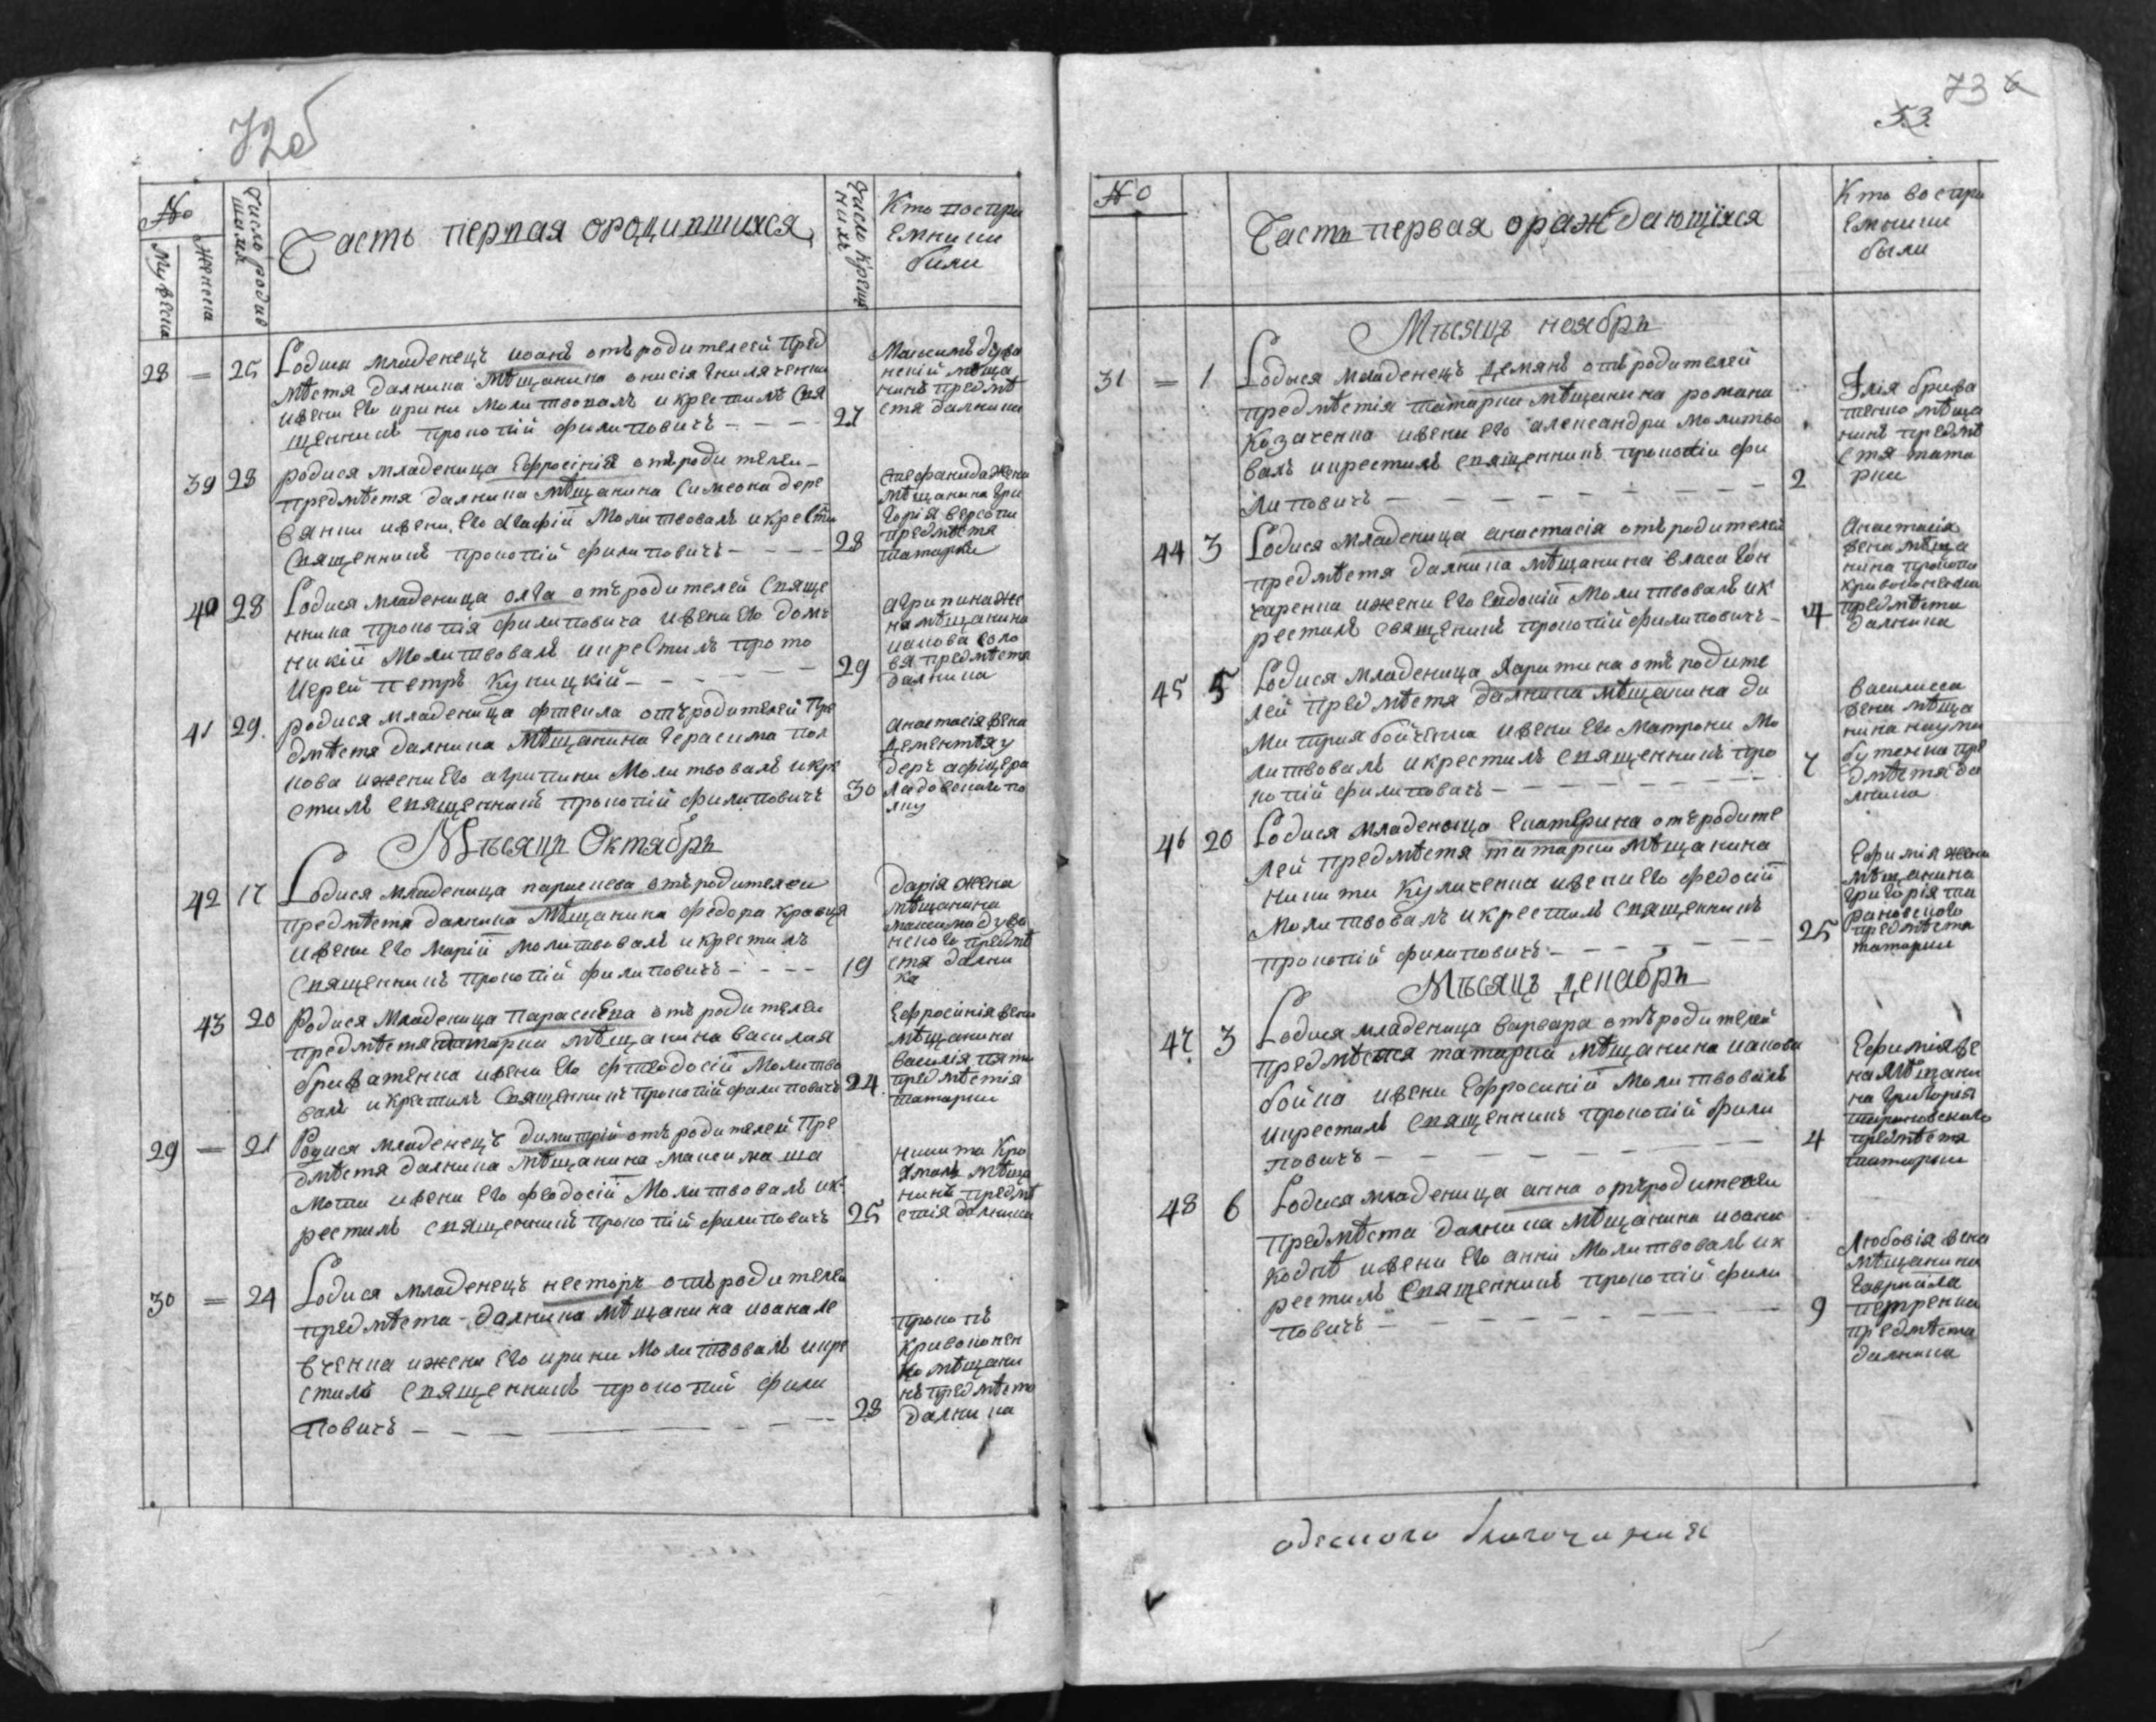 72об
№
Мужеска
Женска
Число родив
шихся
Часть первая о родившихся
Число креще
нихъ
Кто воспри
емники
били
28 — 25 Родися младенецъ иоанъ отъ родителей пред
мѣстя далника мѣщанина онисія
и жени его ирини молитвовалъ и крестилъ свя
щенникъ прокопій филиповичъ — — — — 27
Максимъ
мѣща
нинъ предмѣ
стя далники
39 28 родися младеница Ефросінія отъ родителей
предмѣстя далника мѣщанина Симеона дере
вянки и жени его Агафій молитвовалъ и крести
Священникъ прокопій филиповичъ — — — — 28
Стефанида жена
мѣщанина Гри
горія
предмѣстя
татарки
40 28 Родися младеница олга отъ родителей Свяще
нника прокопія филиповича и жени его домъ
никій молитвовалъ и крестилъ прото
Иерей петръ Куницкій — — — — — 29
Агрипина же
на мѣщанина
иакова соло
вя предмѣстя
далника
41 29. родися младеница фтекла отъ родителей Пре
дмѣстя далника мѣщанина Герасима пол
кова и жени его агрипини молитвовалъ и кре
стилъ священникъ прокопій филиповичъ 30
Анастасія жена
дементія у
деръ афіцера
Ладовскаго по
лку
Мѣсяцъ Октябръ
42 17 Родися младеница параскева отъ родителей
предмѣстя далника мѣщанина федора кравця
и жени его марій молитвовалъ и крестилъ
Священникъ прокопій филиповичъ — — — — 19
дарія жена
мѣщанина
максима
предмѣ
стя дални
ка
43 20 Родися младеница Параскева отъ родителей
предмѣстя татарки мѣщанина василия
бриватенка и жени его фтеодосій молитво
валъ и крестилъ Священникъ прокопій филиповичъ 24
Ефросінія жена
мѣщанина
василія
предмѣстія
татарки
29 — 21 Родися младенецъ димитрій отъ родителей Пре
дмѣстя далника мѣщанина максима ша
мотки и жени его феодосій молитвовалъ и к
рестилъ священникъ прокопій филиповичъ 25
никита
мѣща
нинъ предмѣ
стія далника
30 — 24 Родися младенецъ несторъ отъ родителей
предмѣста далника мѣщанина иоана ле
вченка и жени его ирини молитвовалъ и кре
стилъ священникъ прокопій фили
повичъ — — — — — — — 28
прокопъ
кривопонен
ко мѣщани
нъ предмѣста
далника
73 а
53.
№
Часть первая о раждающихся
Кто воспри
емники
были
Мѣсяцъ ноябръ
31 — 1 Родися младенецъ Демянъ отъ родителей
предмѣстія татарки мѣщанина романа
Козаченка и жени его александри молитво
валъ и крестилъ священникъ прокопій фи
липовичъ — — — — — — — — 2
Илія брива
тенко мѣща
нинъ предмѣ
стя тата
рки
44 3 Родися младеница анастасія отъ родителей
предмѣстя далника мѣщанина власа Гон
чаренка и жени его Евдокій молитвовалъ и к
рестилъ священикъ прокопій филиповичъ — 4
Анастасія
жена мѣща
нина прокопи
кривопоненка
предмѣста
далника
45 5 Родися младеница Харитина отъ родите
лей предмѣстя далника мѣщанина ди
митрия бойченка и жени его матрони мо
литвовалъ и крестилъ священникъ про
копій филиповичъ — — — — — — 7
василисса
жена мѣща
нина
пре
дмѣстя да
лника
46 20 Родися младеница Екатерина отъ родите
лей предмѣстя татарки мѣщанина
никити Куличенка и жени его федосій
молитвовалъ и крестилъ священникъ
прокопій филиповичъ — — — — — — 25
Ефимія жена
мѣщанина
григорія ти
рановского
предмѣста
татарки
Мѣсяцъ декабръ
47 3 Родися младеница варвара отъ родителей
предмѣстя татарки мѣщанина иакова
бойка и жени Ефросиній молитвовалъ
и крестилъ священникъ прокопій фили
повичъ — — — — — — — 4
Ефимія же
на мѣщани
на григория
тирановскаго
предмѣстя
татарки
48 6 Родися младеница анна отъ родителей
предмѣста далника мѣщанина иоана
и жени его анни молитвовалъ и к
рестилъ священникъ прокопій фили
повичъ — — — — — — — 9
Любовія жена
мѣщанина
Гавриила
петренка
предмѣста
далника
одескаго благочиния